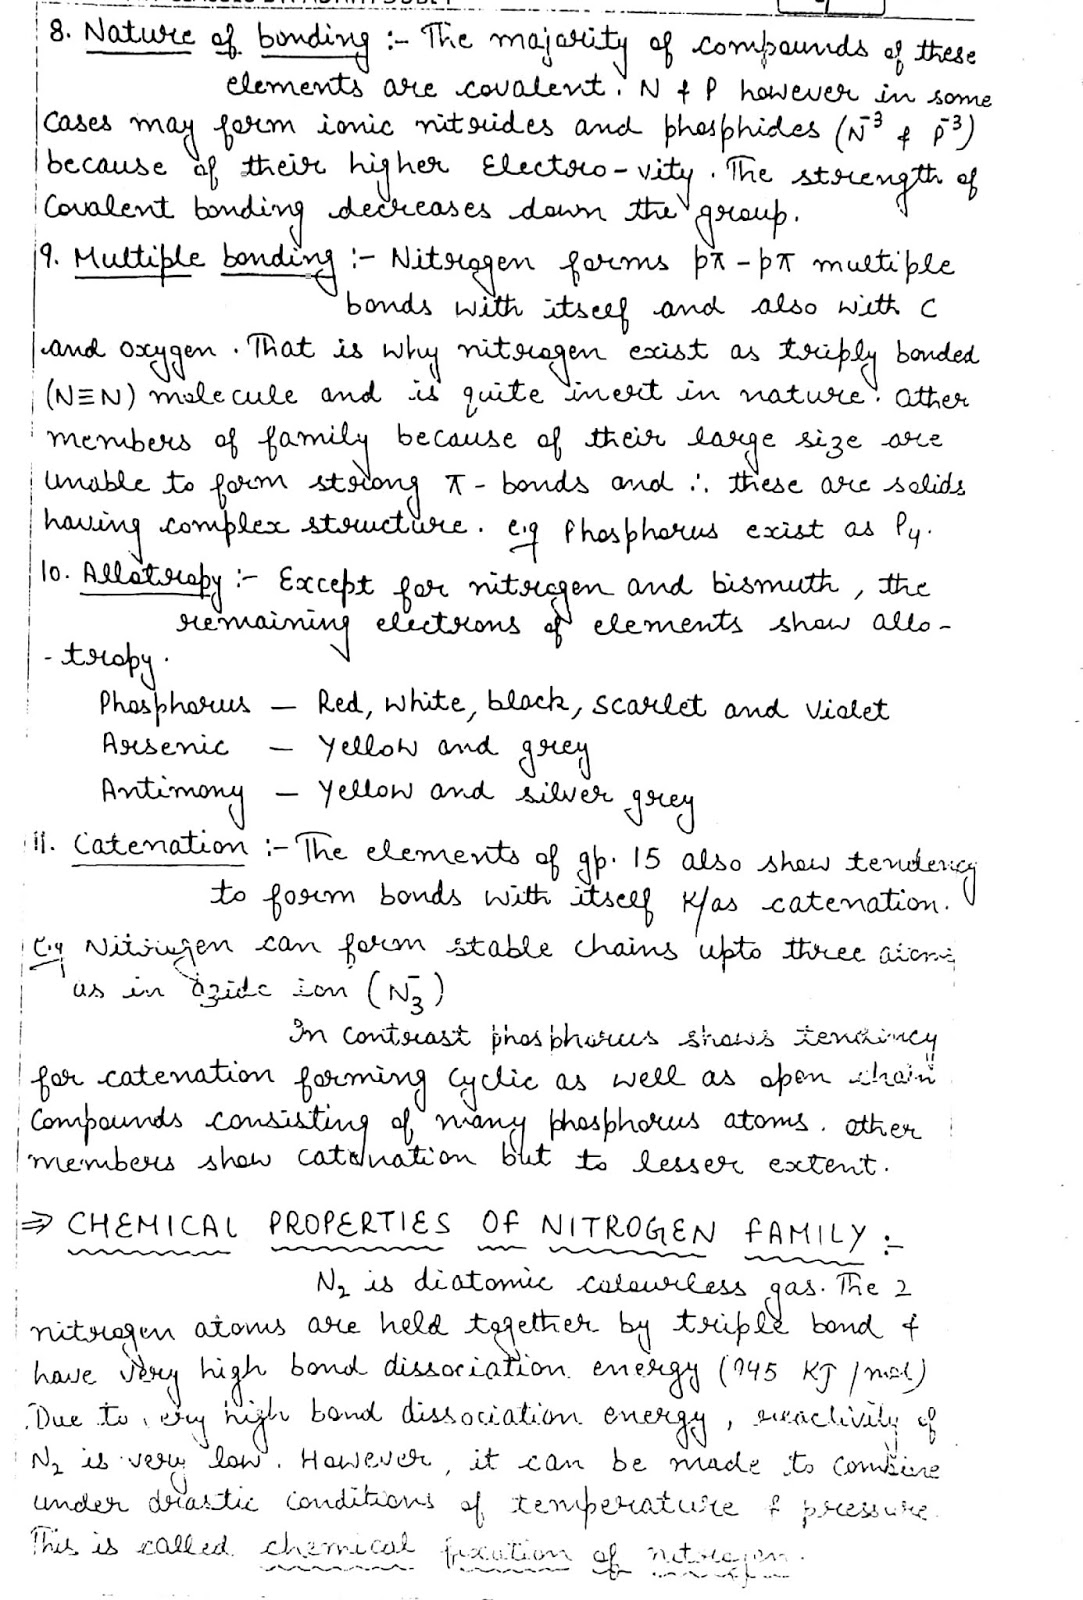 8. Nature of bonding :- The majority of compounds of these
elements are covalent. N & P however in some
cases may form ionic nitrides and phosphides (N⁻³ & P⁻³)
because of their higher Electro-vity. The strength of
Covalent bonding decreases down the group.
9. Multiple bonding :- Nitrogen forms pπ-pπ multiple
bonds with itself and also with C
and oxygen. That is why nitrogen exist as triply bonded
(N≡N) molecule and is quite inert in nature. Other
members of family because of their large size are
unable to form strong π-bonds and ∴ these are solids
having complex structure. e.g Phosphorus exist as P₄.
10. Allotropy :- Except for nitrogen and bismuth, the
remaining electrons of elements show allo-
-tropy.
Phosphorus — Red, white, black, scarlet and violet
Arsenic — Yellow and grey
Antimony — Yellow and silver grey
11. Catenation :- The elements of gp. 15 also show tendency
to form bonds with itself K/as catenation.
e.g Nitrogen can form stable chains upto three atoms
as in azide ion (N₃⁻)
In contrast phosphorus shows tendency
for catenation forming cyclic as well as open chain
Compounds consisting of many phosphorus atoms. other
members show catenation but to lesser extent.
⇒ CHEMICAL PROPERTIES OF NITROGEN FAMILY :-
N₂ is diatomic colourless gas. The 2
nitrogen atoms are held together by triple bond &
have very high bond dissociation energy (945 KJ/mol)
Due to very high bond dissociation energy, reactivity of
N₂ is very low. However, it can be made to combine
under drastic conditions of temperature & pressure.
This is called chemical fixation of nitrogen.